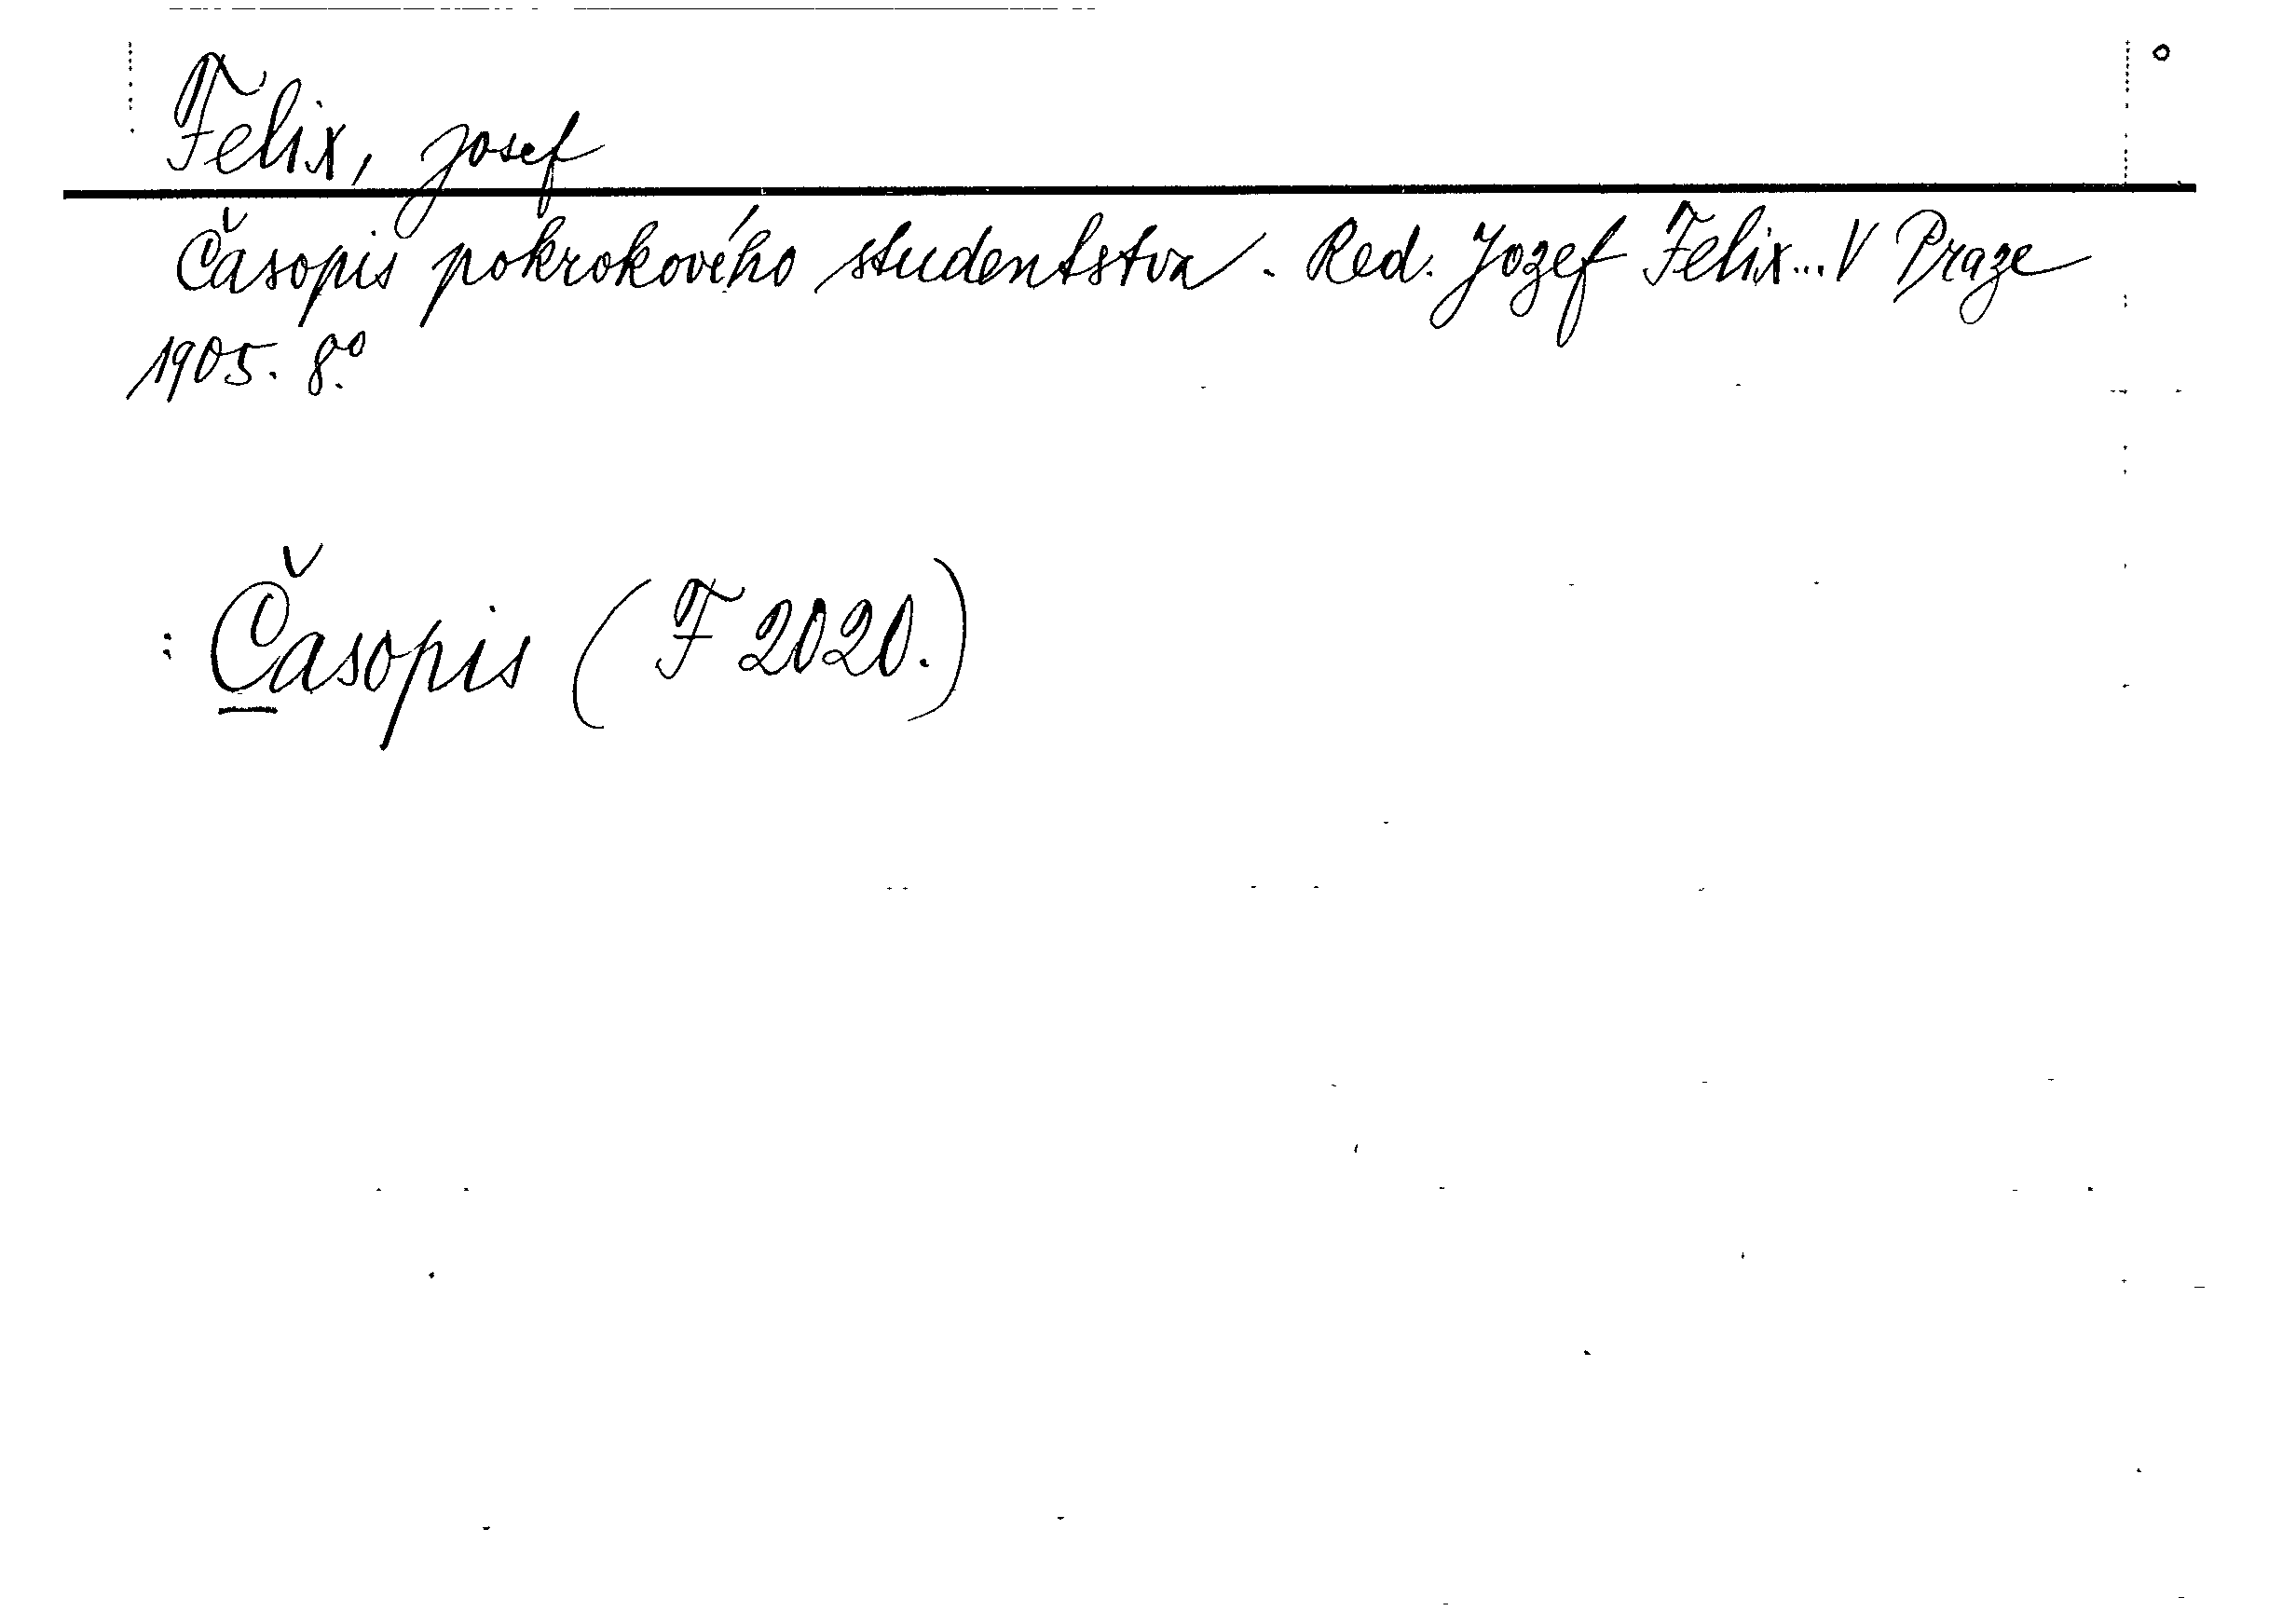 Felix, Josef
Časopis pokrokového studentstva. Red. Jozef Felix... V Praze
1905. 8.º
: Časopis (F 2020.)